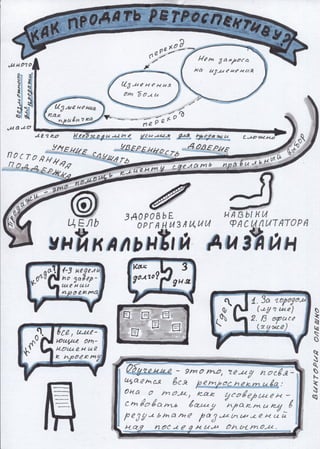 КАК ПРОДАТЬ РЕТРОСПЕКТИВУ?
много
мало
Возможность для продажи
легко
Необходимые усилия для продажи
сложно
Изменения
как
привычка
Изменения
от боли
Нет запроса
на изменения
переход
переход
ПОСТОЯННАЯ
ПОДДЕРЖКА
УМЕНИЕ СЛУШАТЬ
УВЕРЕННОСТЬ
ДОВЕРИЕ
Продажи - это помощь клиенту сделать правильный выбор
ЦЕЛЬ
ЗДОРОВЬЕ
ОРГАНИЗАЦИИ
НАВЫКИ
ФАСИЛИТАТОРА
УНИКАЛЬНЫЙ ДИЗАЙН
Когда?
1-3 недели
по завер-
шении
проекта
Как
долго?
3
дня
Где?
1. За городом
(лучше)
2. В офисе
(хуже)
Кто?
Все, име-
ющие от-
ношение
к проекту
Обучение - это то, чему посвя-
щается вся ретроспектива:
она о том, как усовершен-
ствовать вашу практику в
результате размышлений
над последним опытом.
ВИКТОРИЯ ОЛЕШКО